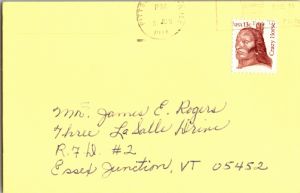 PM
JUN
USA 13c
Crazy Horse
Mr. James E. Rogers
Three LaSalle Drive
R.F.D. #2
Essex Junction, VT 05452